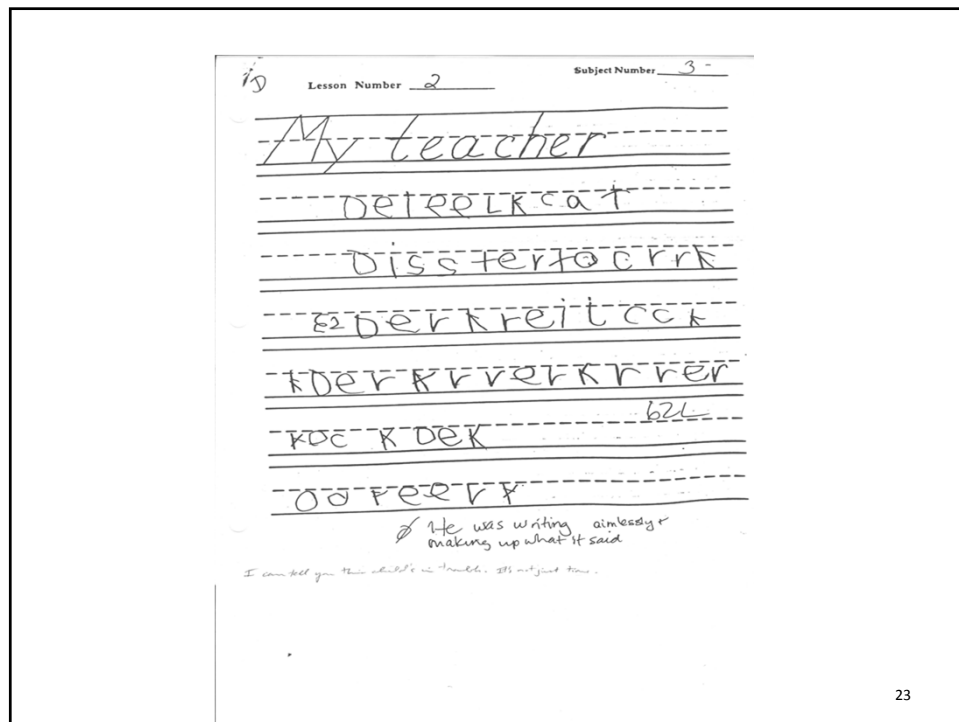 iD
Lesson Number 2 Subject Number 3 -
My teacher
DeleeLk cat
Dissterto crrk
62 Derkreitcck
kDerkrrerkrrer
62L
koc k Dek
oofeerk
∅ He was writing aimlessly +
making up what it said
I can tell you this child's in trouble. It's not just time.
23